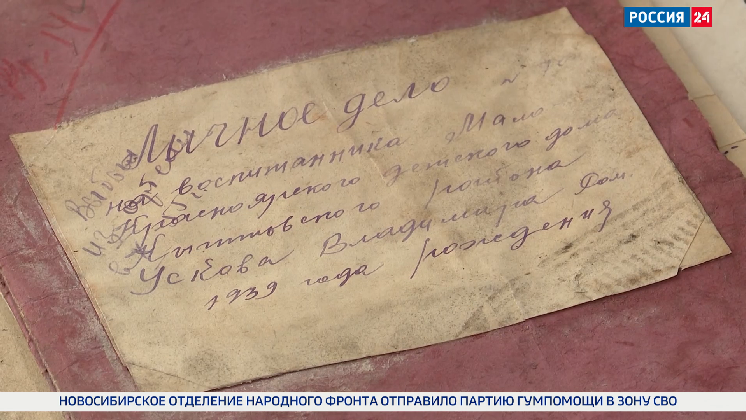 РОССИЯ 24
Личное дело
на воспитанника Мало
Красноярского детского дома
Кыштовского района
Ускова Владимира Ром.
1939 года рождения
НОВОСИБИРСКОЕ ОТДЕЛЕНИЕ НАРОДНОГО ФРОНТА ОТПРАВИЛО ПАРТИЮ ГУМПОМОЩИ В ЗОНУ СВО